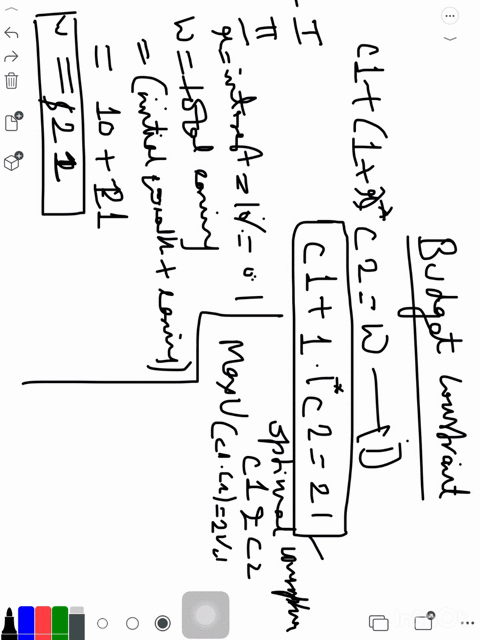 Budget constraint
C1 + (1+r)* C2 = W — (i)
C1 + 1.1* C2 = 21
I
II
r = interest = 1% = 0.1
W = total earning
= (initial wealth + earning)
= 10 + 11
W = $21
optimal consumption
C1 & C2
Max U(C1.C2) = 2√C1